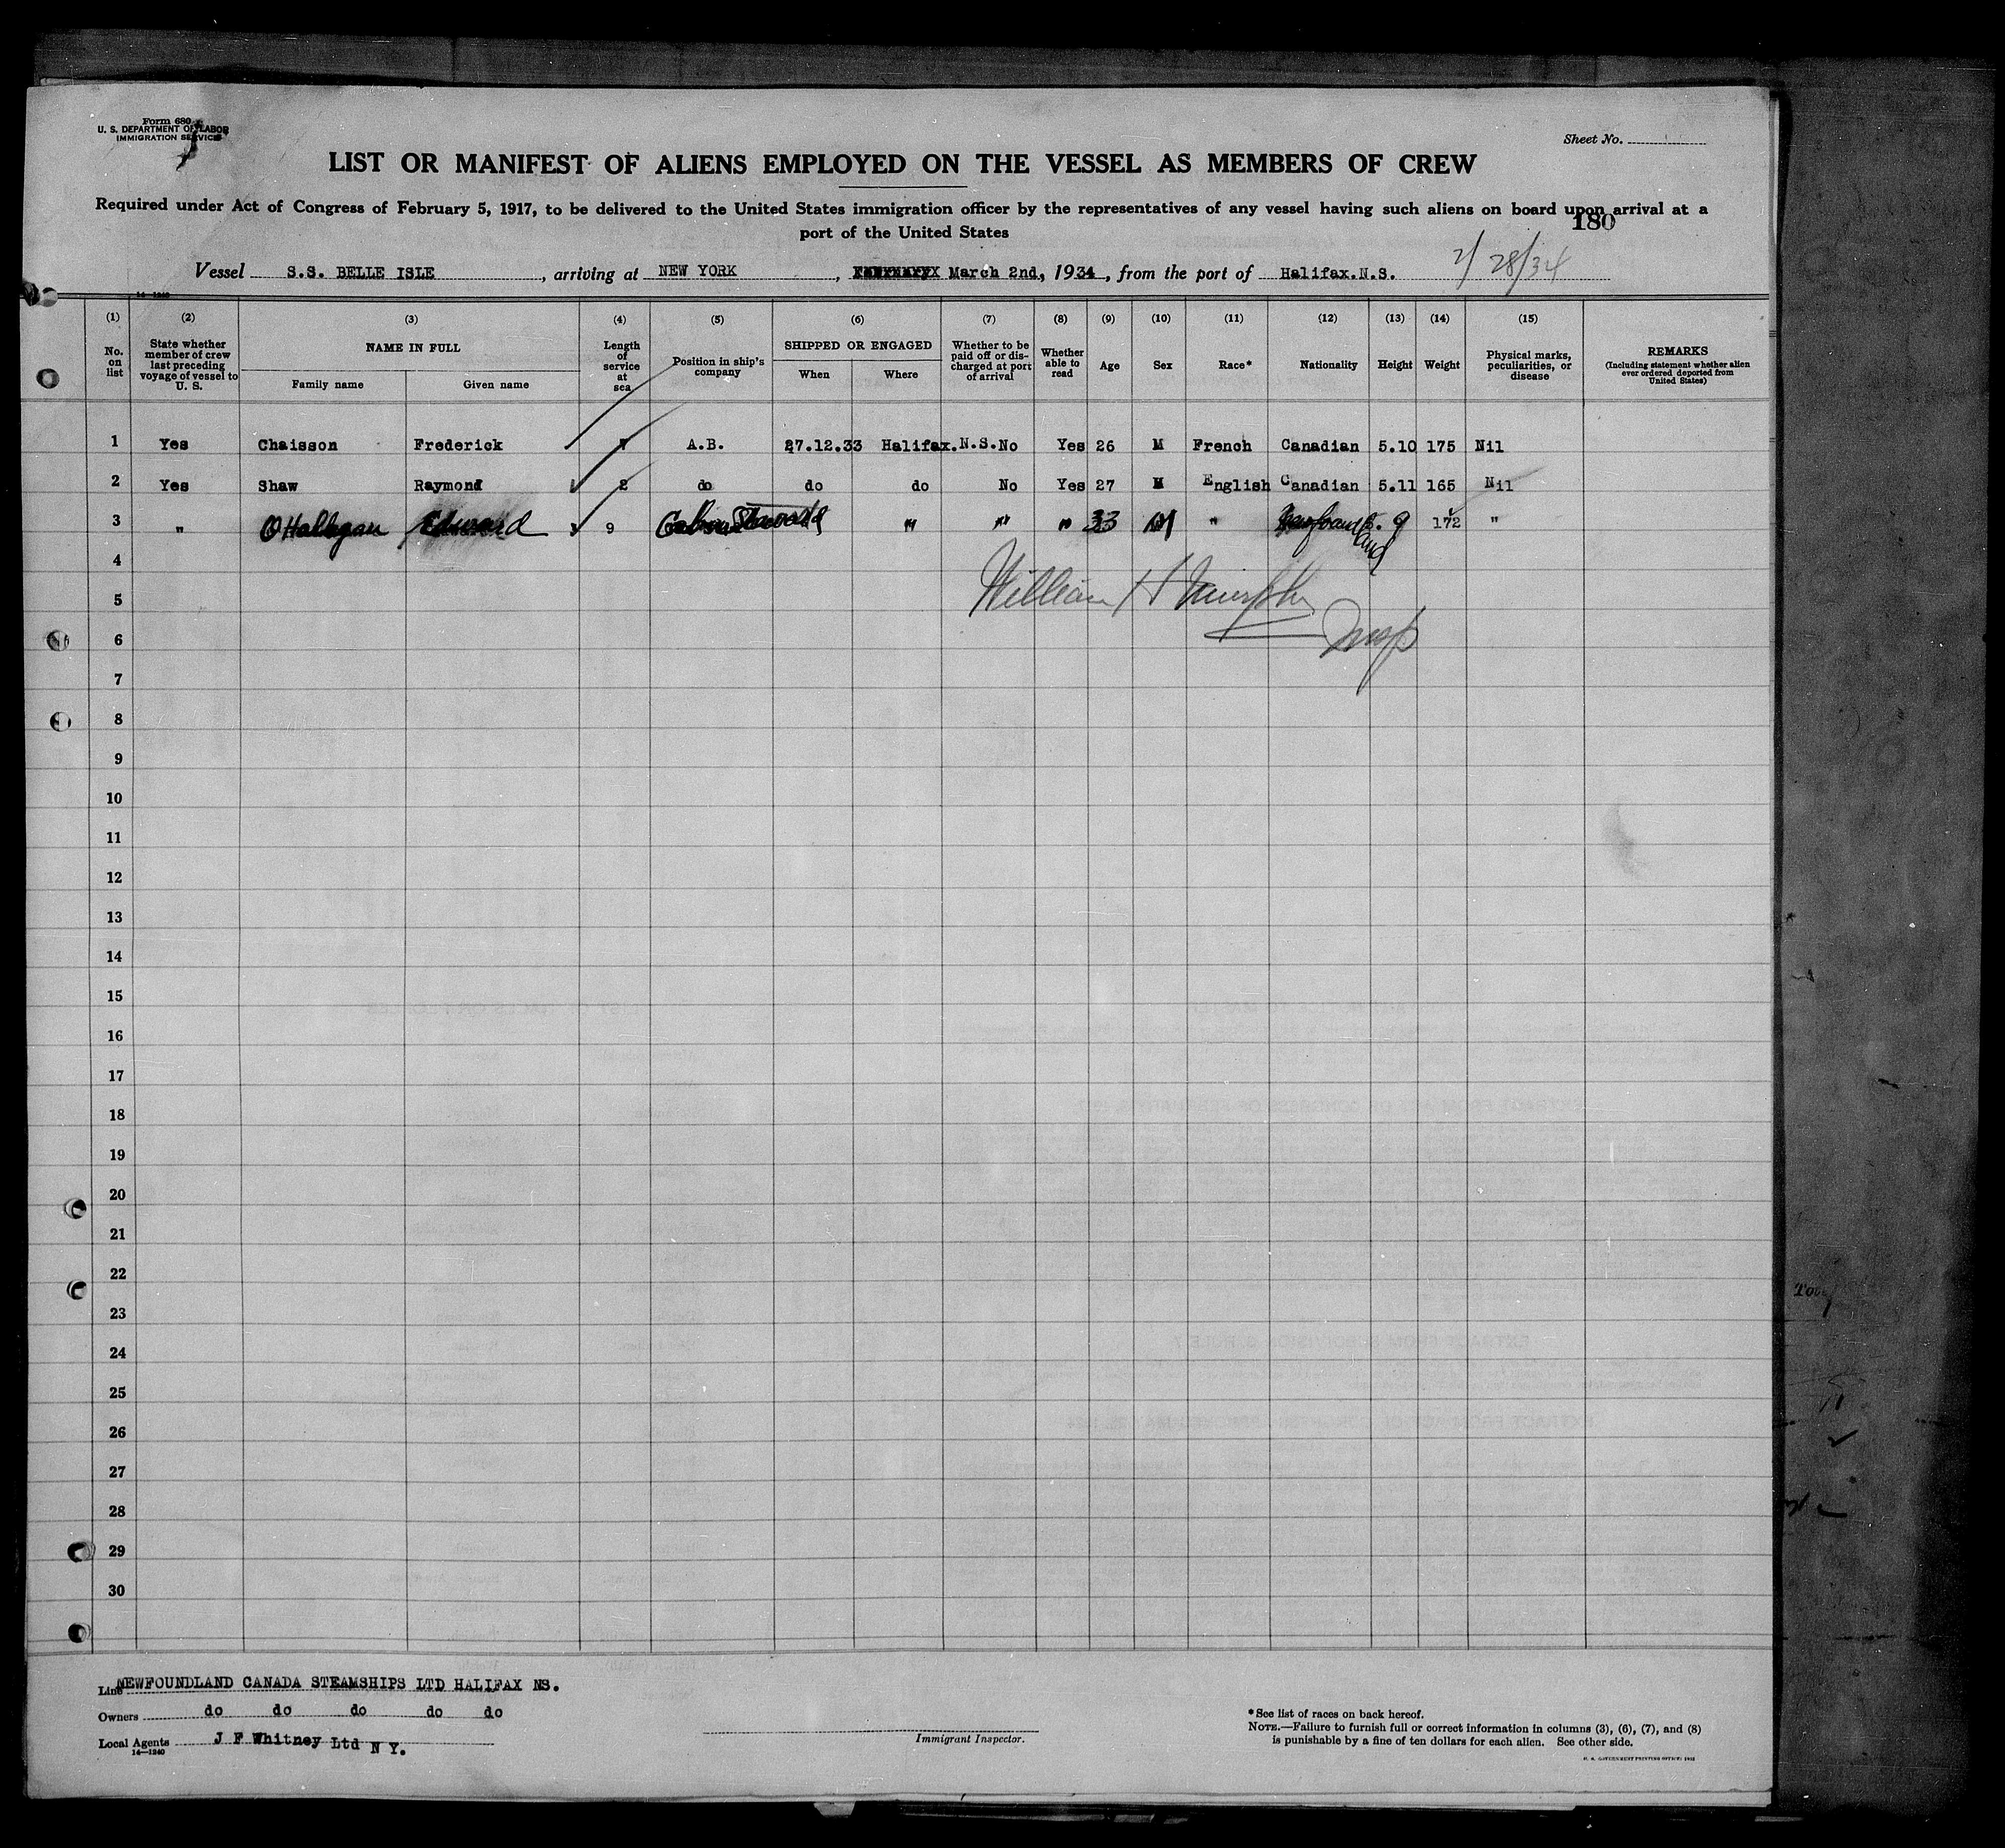 Form 680
U. S. DEPARTMENT OF LABOR
IMMIGRATION SERVICE
Sheet No.
LIST OR MANIFEST OF ALIENS EMPLOYED ON THE VESSEL AS MEMBERS OF CREW
Required under Act of Congress of February 5, 1917, to be delivered to the United States immigration officer by the representatives of any vessel having such aliens on board upon arrival at a
port of the United States
180
Vessel S.S. BELLE ISLE, arriving at NEW YORK, March 2nd, 1934, from the port of Halifax.N.S. 2/28/34
14—1240
(1) (2) (3) (4) (5) (6) (7) (8) (9) (10) (11) (12) (13) (14) (15)
No. on list
State whether member of crew last preceding voyage of vessel to U. S.
NAME IN FULL
Family name
Given name
Length of service at sea
Position in ship's company
SHIPPED OR ENGAGED
When
Where
Whether to be paid off or discharged at port of arrival
Whether able to read
Age
Sex
Race*
Nationality
Height
Weight
Physical marks, peculiarities, or disease
REMARKS
(Including statement whether alien ever ordered deported from United States)
1 Yes Chaisson Frederick 7 A.B. 27.12.33 Halifax.N.S. No Yes 26 M French Canadian 5.10 175 Nil
2 Yes Shaw Raymond 2 do do do No Yes 27 M English Canadian 5.11 165 Nil
3 " O'Hallegan Edward 9 " " " 33 M " Newfoundland 5.9 172 "
4
William H Murphy
5
6
Insp
7
8
9
10
11
12
13
14
15
16
17
18
19
20
21
22
23
24
25
26
27
28
29
30
Line NEWFOUNDLAND CANADA STEAMSHIPS LTD HALIFAX NS.
Owners do do do do do
Local Agents J F Whitney Ltd N Y.
14—1240
Immigrant Inspector.
*See list of races on back hereof.
NOTE.—Failure to furnish full or correct information in columns (3), (6), (7), and (8)
is punishable by a fine of ten dollars for each alien. See other side.